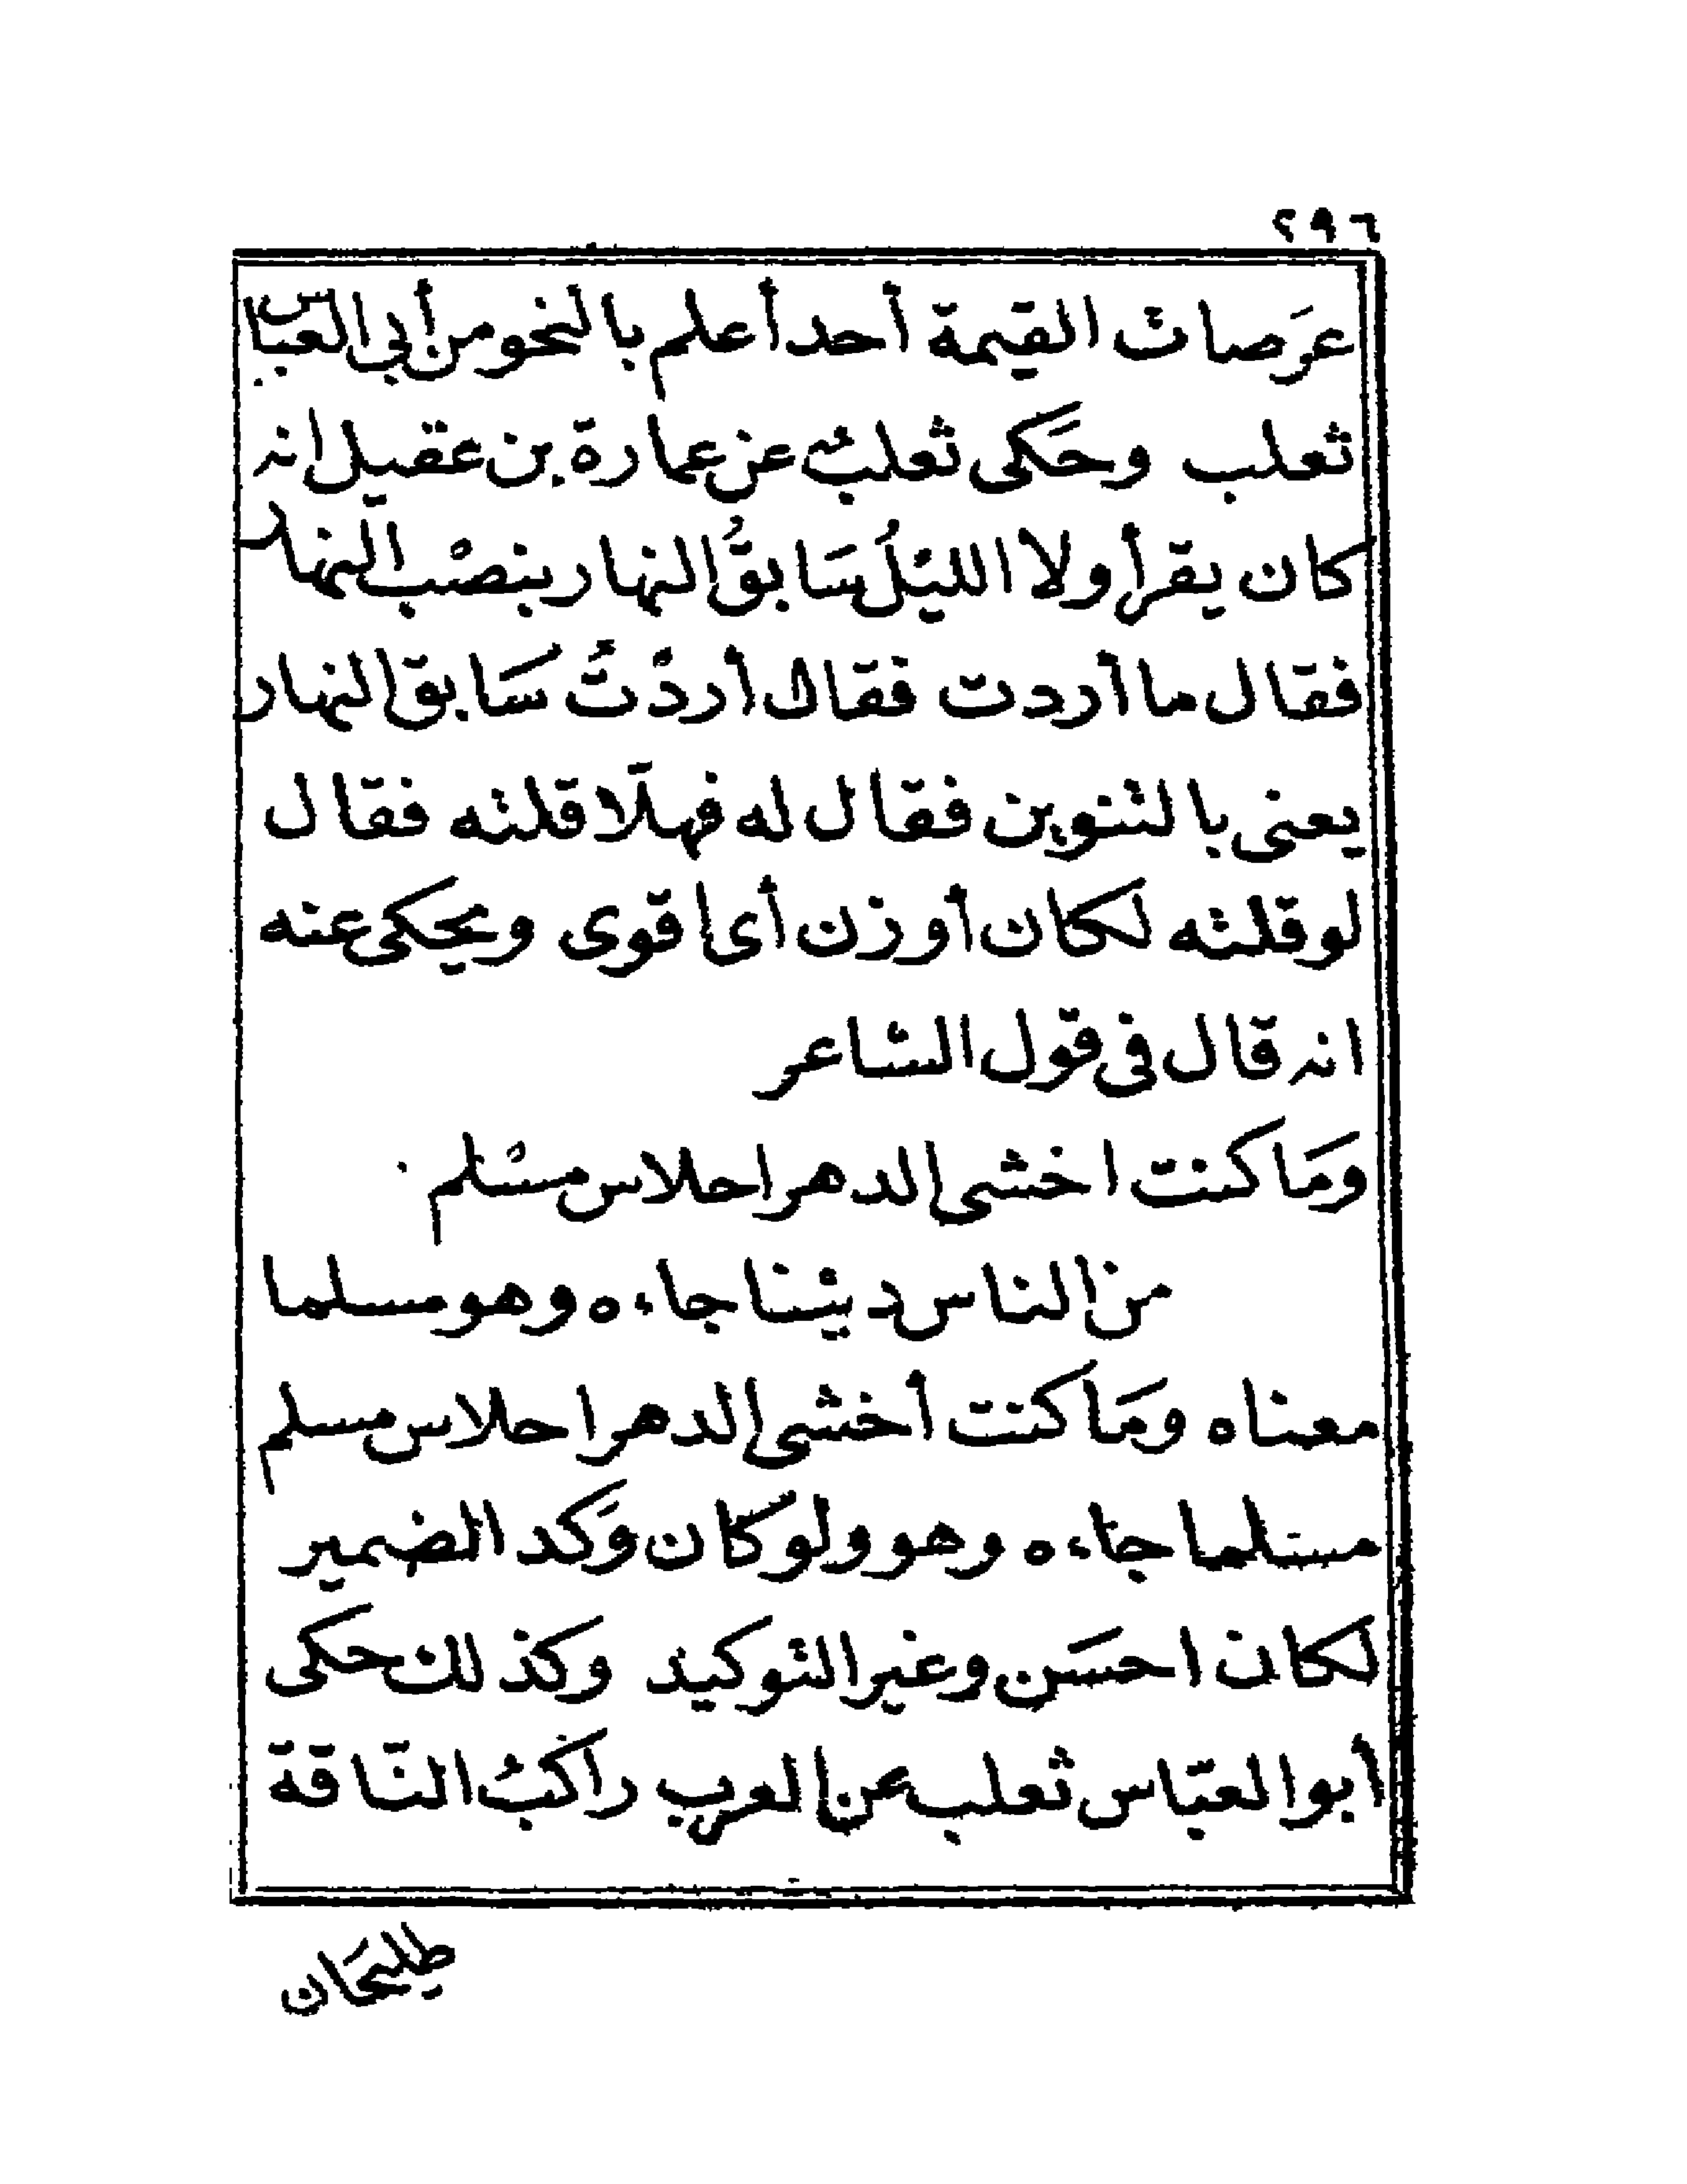 ٢٩٦
عَرَصات القيمة أحد أعلم بالنحو من أبي العباس
ثعلب وحَكى ثعلبُ عن عمارة بن عقيل انه
كان يقرأ ولا الليْلُ سَابقُ النهار بنصْب النهار
فقال ما أردت فقال أردْتُ سَابق النهار
يعنى بالتنوين فقال له فهلّا قلته فقال
لو قلته لكان أوزن أى اقوى ويحكى عنه
انه قال فى قول الشاعر
ومَا كنت اخشى الدهر احلاس مسْلم
من الناس دينْنا جاءه وهو مسلما
معناه ومَا كنت أخشى الدهر احلاس مسلم
مسلما جاءه وهو ولو كان وَكد الضمير
لكان احسَن وغير التوكيد وكذلك حكى
أبو العبّاس ثعلب عن العرب راكبُ النّاقة
طليحَان